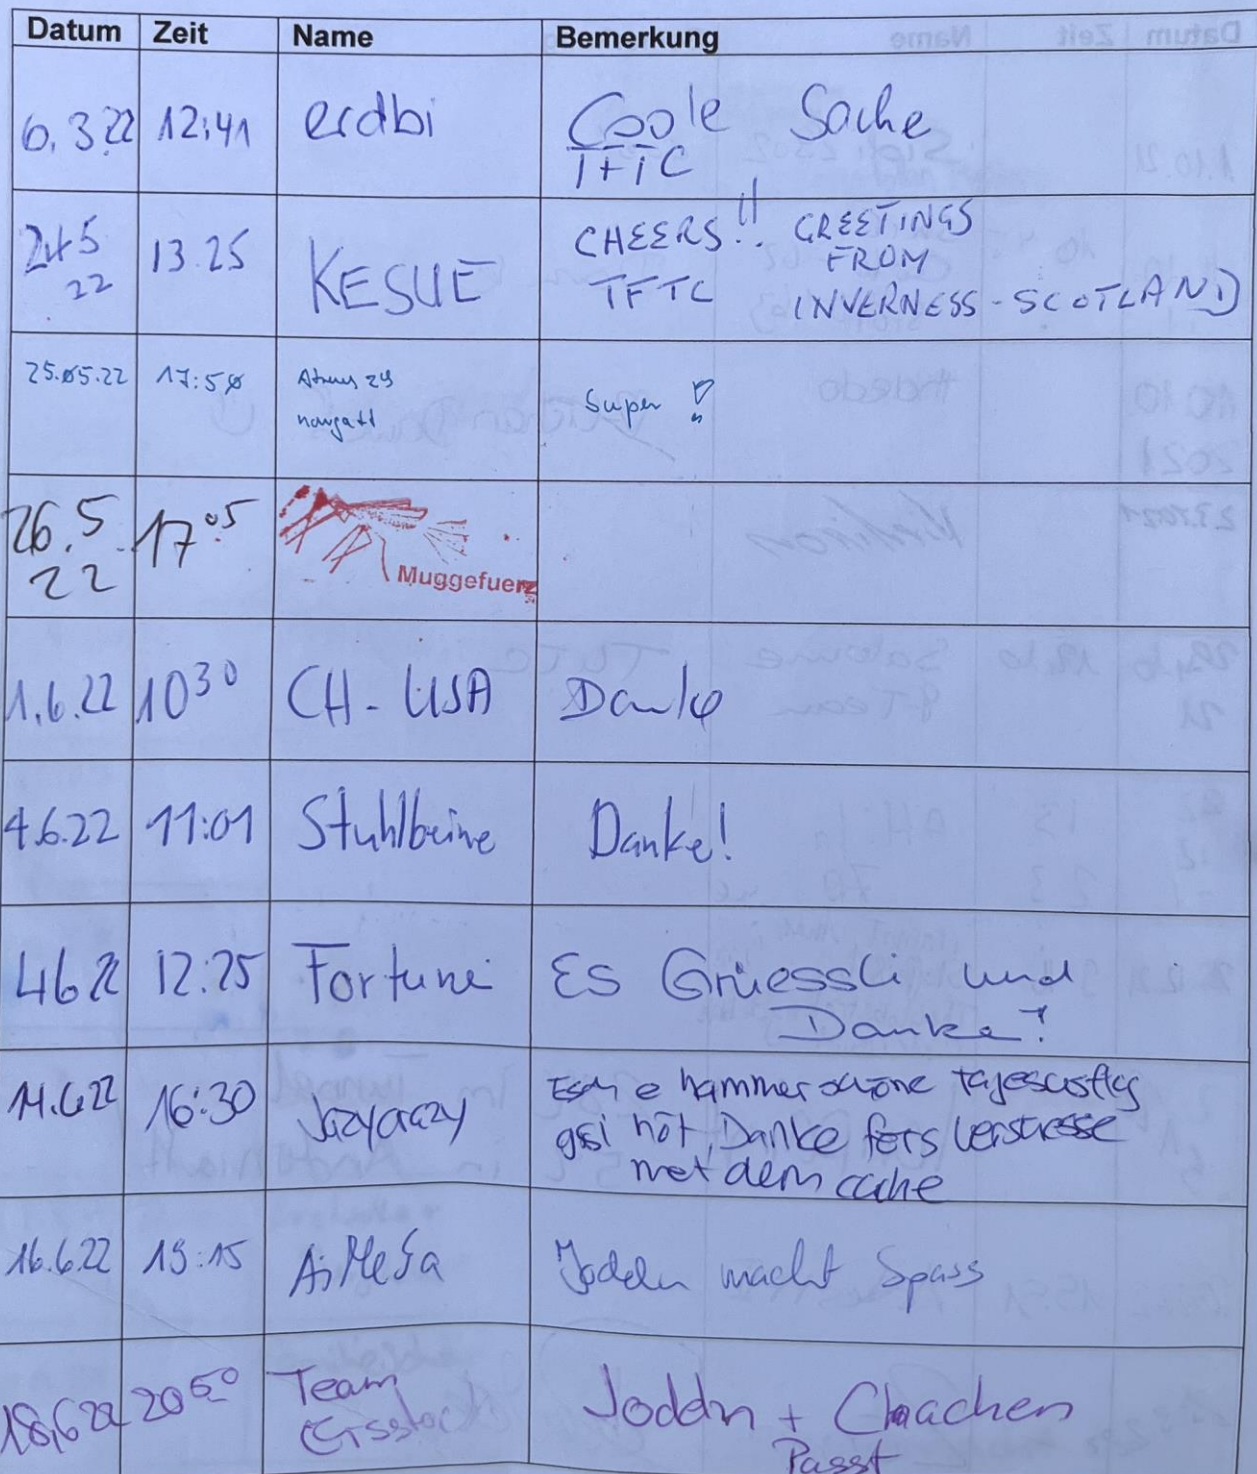 Datum Zeit Name Bemerkung
6.3.22 12:41 erdbi Coole Sache
TFTC
24.5 13.25 KESUE CHEERS!! GREETINGS
22 TFTC FROM
INVERNESS-SCOTLAND
25.05.22 17:50 Super!
26.5 17 05
22
Muggefuerz
1.6.22 10 30 CH-USA Danke
4.6.22 11:01 Stuhlbeine Danke!
4 6 22 12:25 Fortuni Es Grüessli und
Danke!
16:30 Jazycrazy Esch e hammer schöne
gsi höt, Danke förs verstecke
met dem cache
16.6.22 19:15 AiMeSa Jodeln macht Spass
18.6 22 20 50 Team Joddn + Chachen
Passt